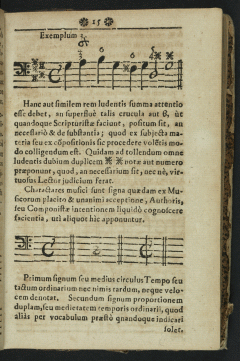 15
Exemplum 2.
Hanc aut similem rem ludentis summa attentio
esse debet, an superflué talis crucula aut ß, ùt
quandoque Scripturistæ faciunt, positum sit, an
necessariò & de substantia; quod ex subjecta ma-
teria seu ex dispositionis sic procedere volētis mo-
do colligendum est. Quidam ad tollendum omne
ludentis dubium duplicem ※ ※ notæ aut numero
præponunt, quod, an necessarium sit, nec nè, vir-
tuosus Lector judicium ferat.
Charactares musici sunt signa quædam ex Mu-
sicorum placito & unanimi acceptione, Authoris,
seu Componistæ intentionem liquidò cognoscere
facientia, uti aliquot hic apponuntur.
Primum signum seu medius circulus Tempo seu
tactum ordinarium nec nimis tardum, neque velo-
cem denotat. Secundum signum proportionem
duplam, seu medietatem temporis ordinarii, quod
aliàs per vocabulum præstò quandoque indicari
solet.